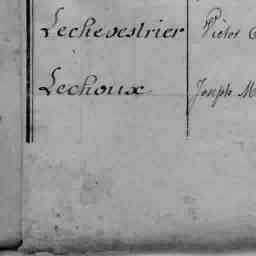 Lechevestrier Victor
Lechoux Joseph M